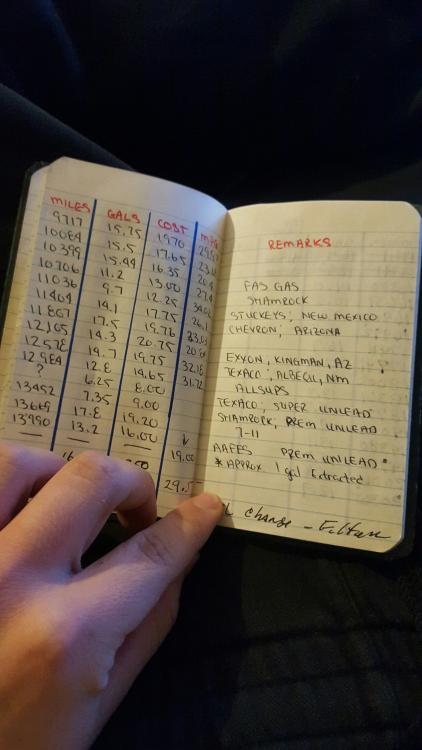 MILES GALS COST
9717 15.75 19.70
10084 15.5 17.65
10399 15.44 16.35
10706 11.2 13.00
11036 9.7 12.25
11464 14.1 17.75
11807 17.5 19.76
12105 14.3 20.75
12578 14.7 19.75
12984 12.8 14.65
? 6.25 8.00
13452 7.35 9.00
13669 17.8 19.20
13990 13.2 16.00
19.00
REMARKS
FAS GAS
SHAMROCK
STUCKEYS, NEW MEXICO
CHEVRON, ARIZONA
EXXON, KINGMAN, AZ
TEXACO, ALBEQU, NM
ALLSUPS
TEXACO, SUPER UNLEAD
SHAMROCK, PREM UNLEAD
7-11
AAFES PREM UNLEAD
* APPROX 1 gal Extracted
change -